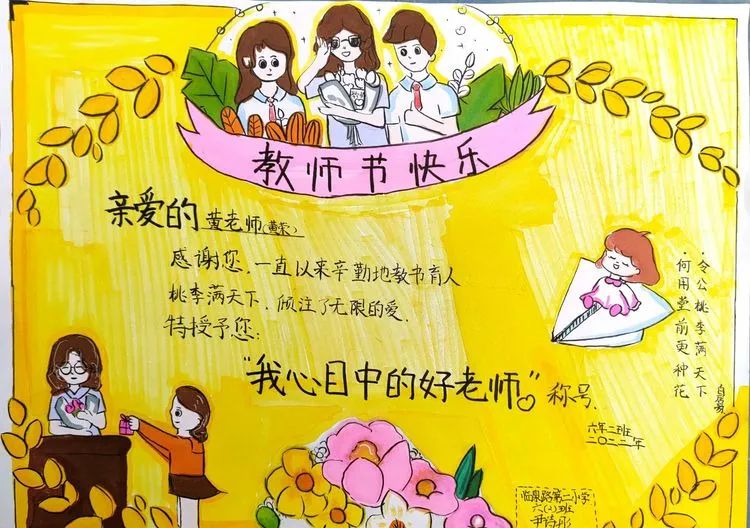 教师节快乐
亲爱的黄老师(黄荣)
感谢您,一直以来辛勤地教书育人
桃李满天下,倾注了无限的爱.
特授予您:
"我心目中的好老师"称号.
令公桃李满天下
何用堂前更种花
白居易
六年二班
二〇二二年
临泉路第二小学
六(2)班